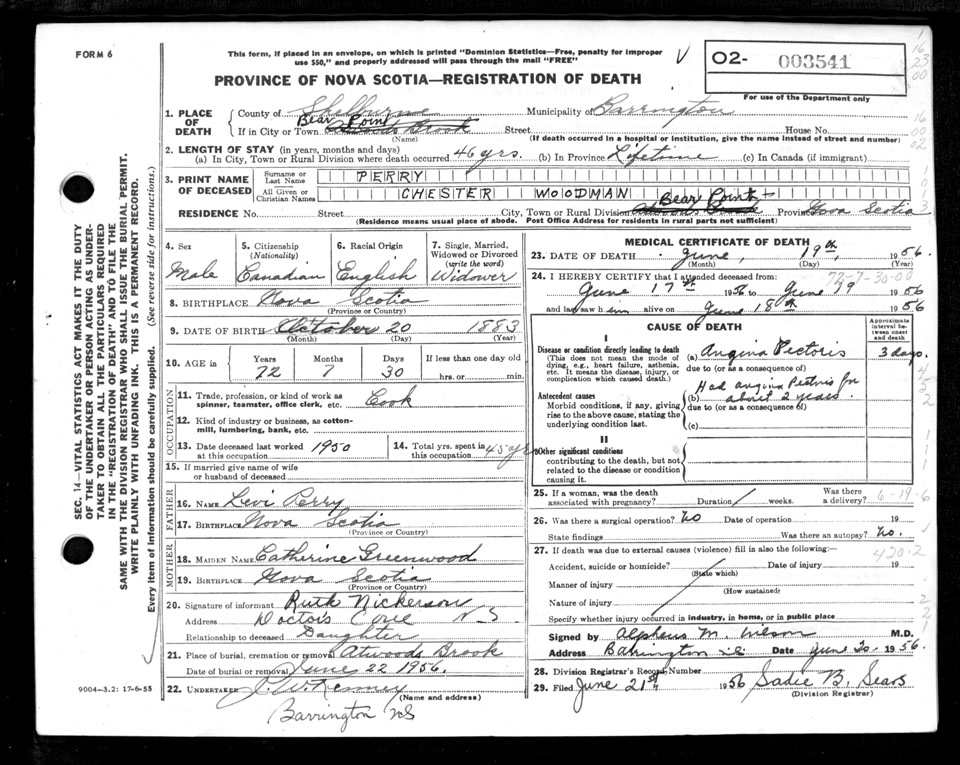 FORM 6
This form, if placed in an envelope, on which is printed "Dominion Statistics—Free, penalty for improper
use $50," and properly addressed will pass through the mail "FREE"
V
02- 003541
For use of the Department only
PROVINCE OF NOVA SCOTIA—REGISTRATION OF DEATH
1. PLACE OF DEATH
County of Shelburne Municipality of Barrington
Bear Point
If in City or Town Atwoods Brook Street House No.
(Name) (If death occurred in a hospital or institution, give the name instead of street and number)
2. LENGTH OF STAY (in years, months and days)
(a) In City, Town or Rural Division where death occurred 46 yrs. (b) In Province Lifetime (c) In Canada (if immigrant)
3. PRINT NAME OF DECEASED
Surname or Last Name PERRY
All Given or Christian Names CHESTER WOODMAN
Bear Point
RESIDENCE No. Street City, Town or Rural Division Atwoods Brook Province Nova Scotia
(Residence means usual place of abode. Post Office Address for residents in rural parts not sufficient)
4. Sex Male
5. Citizenship (Nationality) Canadian
6. Racial Origin English
7. Single, Married, Widowed or Divorced (write the word) Widower
8. BIRTHPLACE Nova Scotia
(Province or Country)
9. DATE OF BIRTH October 20 1883
(Month) (Day) (Year)
10. AGE in Years 72 Months 7 Days 30 If less than one day old hrs. or min.
OCCUPATION
11. Trade, profession, or kind of work as spinner, teamster, office clerk, etc. Cook
12. Kind of industry or business, as cotton-mill, lumbering, bank, etc.
13. Date deceased last worked at this occupation 1950
14. Total yrs. spent in this occupation 45 yrs
15. If married give name of wife or husband of deceased
FATHER
16. NAME Levi Perry
17. BIRTHPLACE Nova Scotia
(Province or Country)
MOTHER
18. MAIDEN NAME Catherine Greenwood
19. BIRTHPLACE Nova Scotia
(Province or Country)
20. Signature of informant Ruth Nickerson
Address Doctors Cove N.S
Relationship to deceased Daughter
21. Place of burial, cremation or removal Atwoods Brook
Date of burial or removal June 22 1956.
22. UNDERTAKER J. W. Kenney
(Name and address)
Barrington NS
9004—3.2: 17-6-55
MEDICAL CERTIFICATE OF DEATH
23. DATE OF DEATH June, 19th, 1956.
(Month) (Day) (Year)
72-7-30-00
24. I HEREBY CERTIFY that I attended deceased from:
June 17th 1956 to June 19 1956
and last saw him alive on June 18th 1956
CAUSE OF DEATH
Approximate interval between onset and death
I
Disease or condition directly leading to death
(This does not mean the mode of dying, e.g., heart failure, asthenia, etc. It means the disease, injury, or complication which caused death.)
(a) Angina Pectoris 3 days.
due to (or as a consequence of)
Antecedent causes
Morbid conditions, if any, giving rise to the above cause, stating the underlying condition last.
Had angina Pectoris for
(b) about 2 years.
due to (or as a consequence of)
(c)
II
Other significant conditions
contributing to the death, but not related to the disease or condition causing it.
25. If a woman, was the death associated with pregnancy? Duration weeks. Was there a delivery? 6-19-6
26. Was there a surgical operation? No Date of operation 19
State findings Was there an autopsy? No.
27. If death was due to external causes (violence) fill in also the following:— 420-2
Accident, suicide or homicide? Date of injury 19
(State which)
Manner of injury
(How sustained)
Nature of injury
Specify whether injury occurred in industry, in home, or in public place
Signed by Alpheus M. Wilson M.D.
Address Barrington N.S. Date June 20 1956.
28. Division Registrar's Record Number
29. Filed June 21st 1956 Sadie B. Sears
(Division Registrar)
SEC. 14—VITAL STATISTICS ACT MAKES IT THE DUTY
OF THE UNDERTAKER OR PERSON ACTING AS UNDER-
TAKER TO OBTAIN ALL THE PARTICULARS REQUIRED
IN THE "REGISTRATION OF DEATH" AND TO FILE THE
SAME WITH THE DIVISION REGISTRAR WHO SHALL ISSUE THE BURIAL PERMIT.
WRITE PLAINLY WITH UNFADING INK. THIS IS A PERMANENT RECORD.
Every item of information should be carefully supplied. (See reverse side for instructions.)